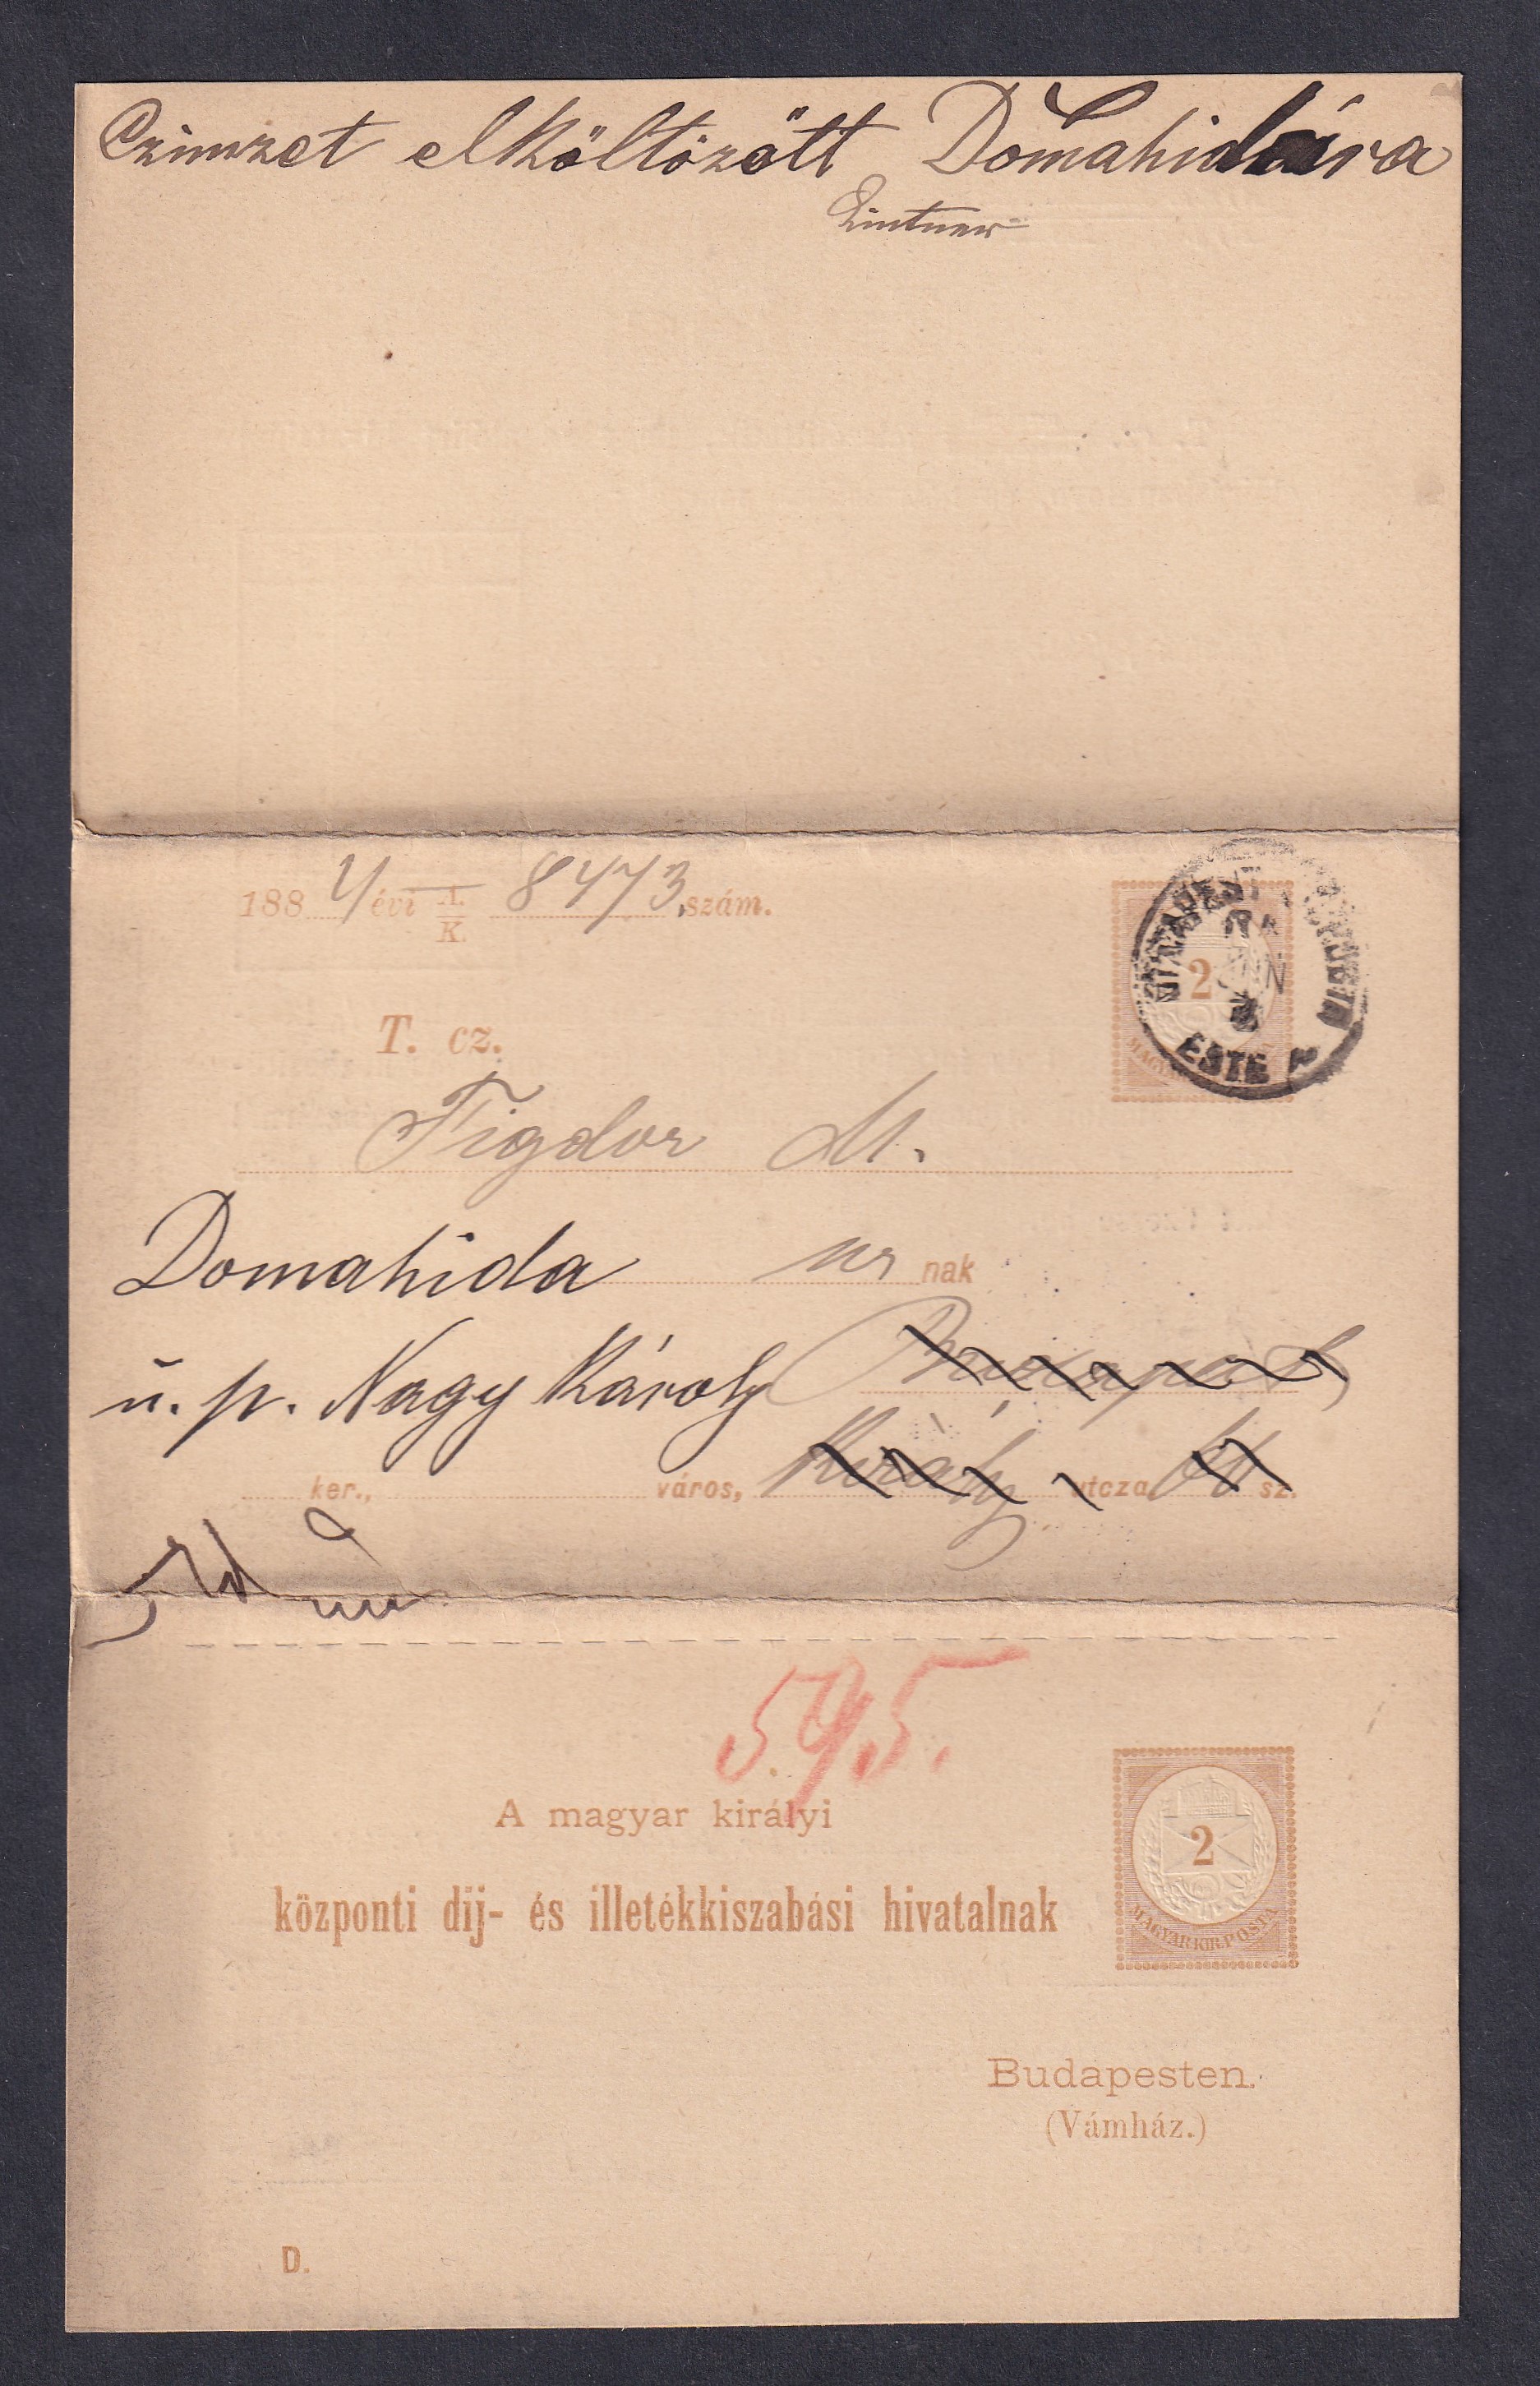 Czimzet elköltözött Domahidára
Lintner
1884 évi A. K. 8473 szám.
2
ESTE
T. cz.
Figdor M.
Domahida ur nak
u. p. Nagy Károly Budapest
ker., város, Király utcza sz.
595.
A magyar királyi
központi díj- és illetékkiszabási hivatalnak
2
MAGYAR KIR. POSTA
Budapesten.
(Vámház.)
D.